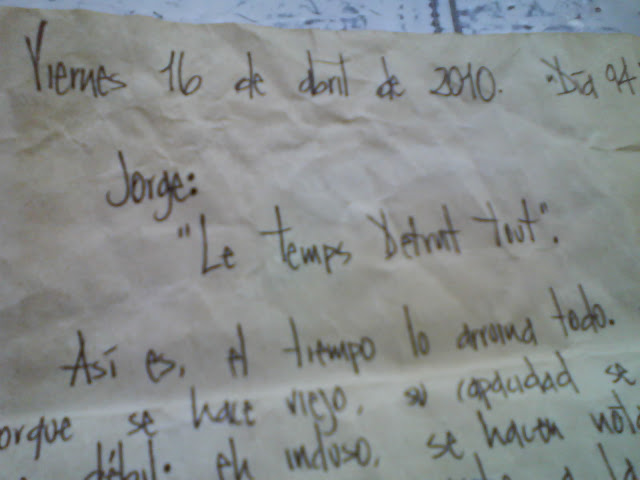 Viernes 16 de abril de 2010. "Día 94"
Jorge:
"Le temps Detruit tout".
Así es, el tiempo lo arruina todo.
orque se hace viejo, su capacidad se
débil; eh incluso, se hacen
a la